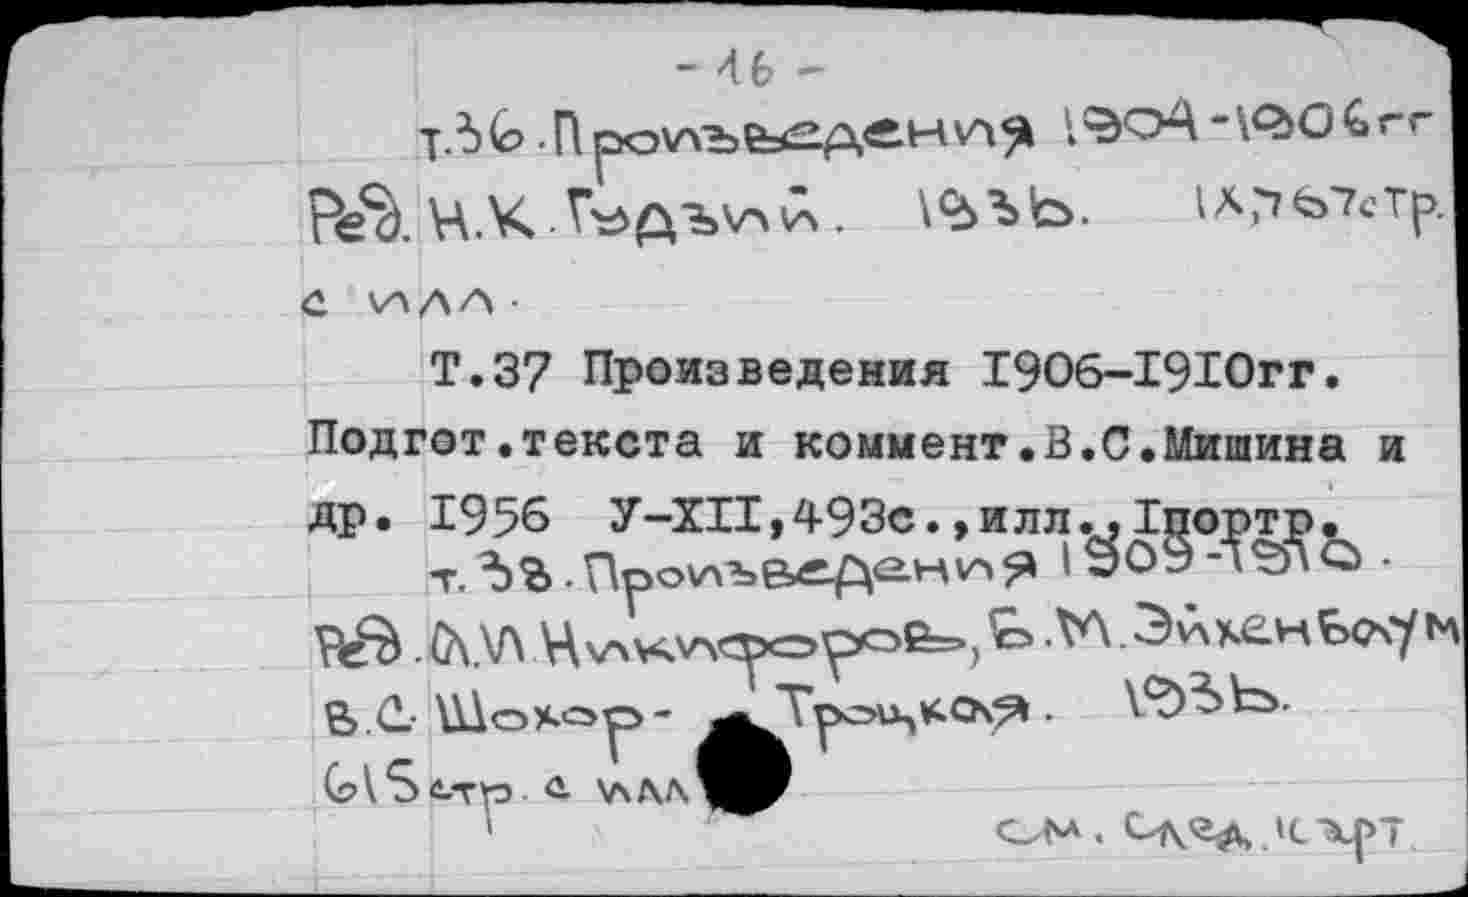 - 16 -
т.36.Произведения 1904-1906гг
Ред. Н.К.Гудзий. 1936. IX,767стр.
с илл.
Т.37 Произведения I906-I9I0гг.
Подгот.текста и коммент.В.С.Мишина и
др. I956 У-XII,493с.,илл.,Iпортр.
т.38.Произведения 1909-1910.
Ред. Н.Никифоров, Б.М.Эйхенбаум
В.С. Шохор-Троцкая. 1936.
615стр. с илл
см. след. карт